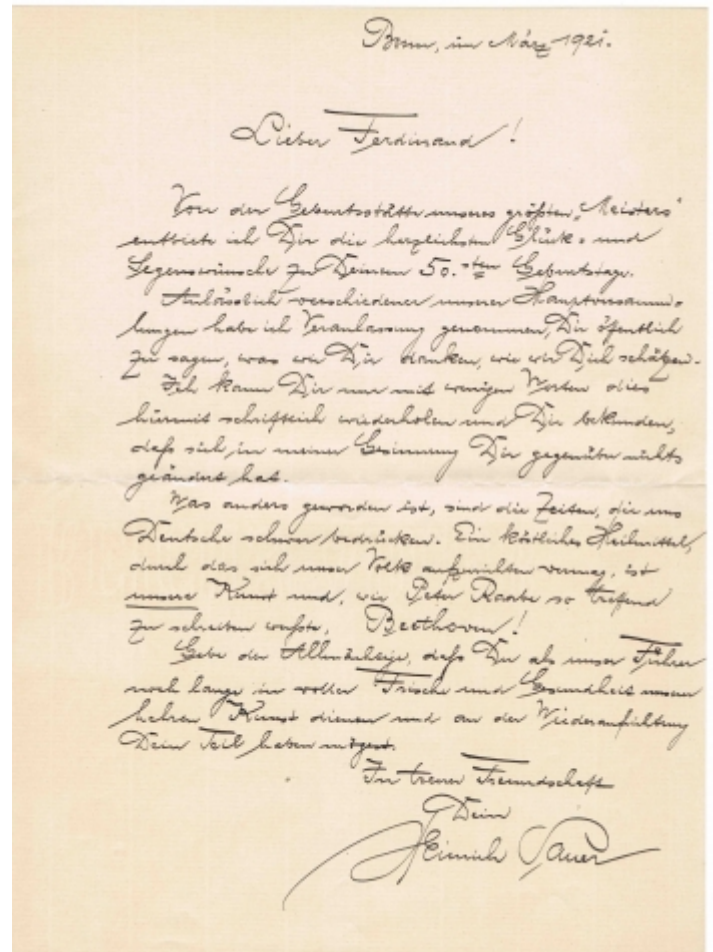 Bonn, im März 1921.
Lieber Ferdinand!
Von der Geburtsstätte unseres größten „Meisters“
entbiete ich Dir die herzlichsten Glück- und
Segenswünsche zu Deinem 50.sten Geburtstage.
Anlässlich verschiedener unserer Hauptversamm-
lungen habe ich Veranlassung genommen, Dir öffentlich
zu sagen, was wir Dir danken, wie wir Dich schätzen.
Ich kann Dir nur mit wenigen Worten dies
hiermit schriftlich wiederholen und Dir bekunden,
daß sich in meiner Gesinnung Dir gegenüber nichts
geändert hat.
Was anders geworden ist, sind die Zeiten, die uns
Deutsche schwer bedrücken. Ein köstliches Heilmittel,
durch das sich unser Volk aufzurichten vermag, ist
unsere Kunst und, wie Peter Raabe so treffend
zu schreiben wußte, Beethoven!
Gebe der Allmächtige, daß Du als unser Führer
noch lange in voller Frische und Gesundheit unserer
hehren Kunst dienen und an der Wiederaufrichtung
Dein Teil haben mögest.
In treuer Freundschaft
Dein
Heinrich Sauer